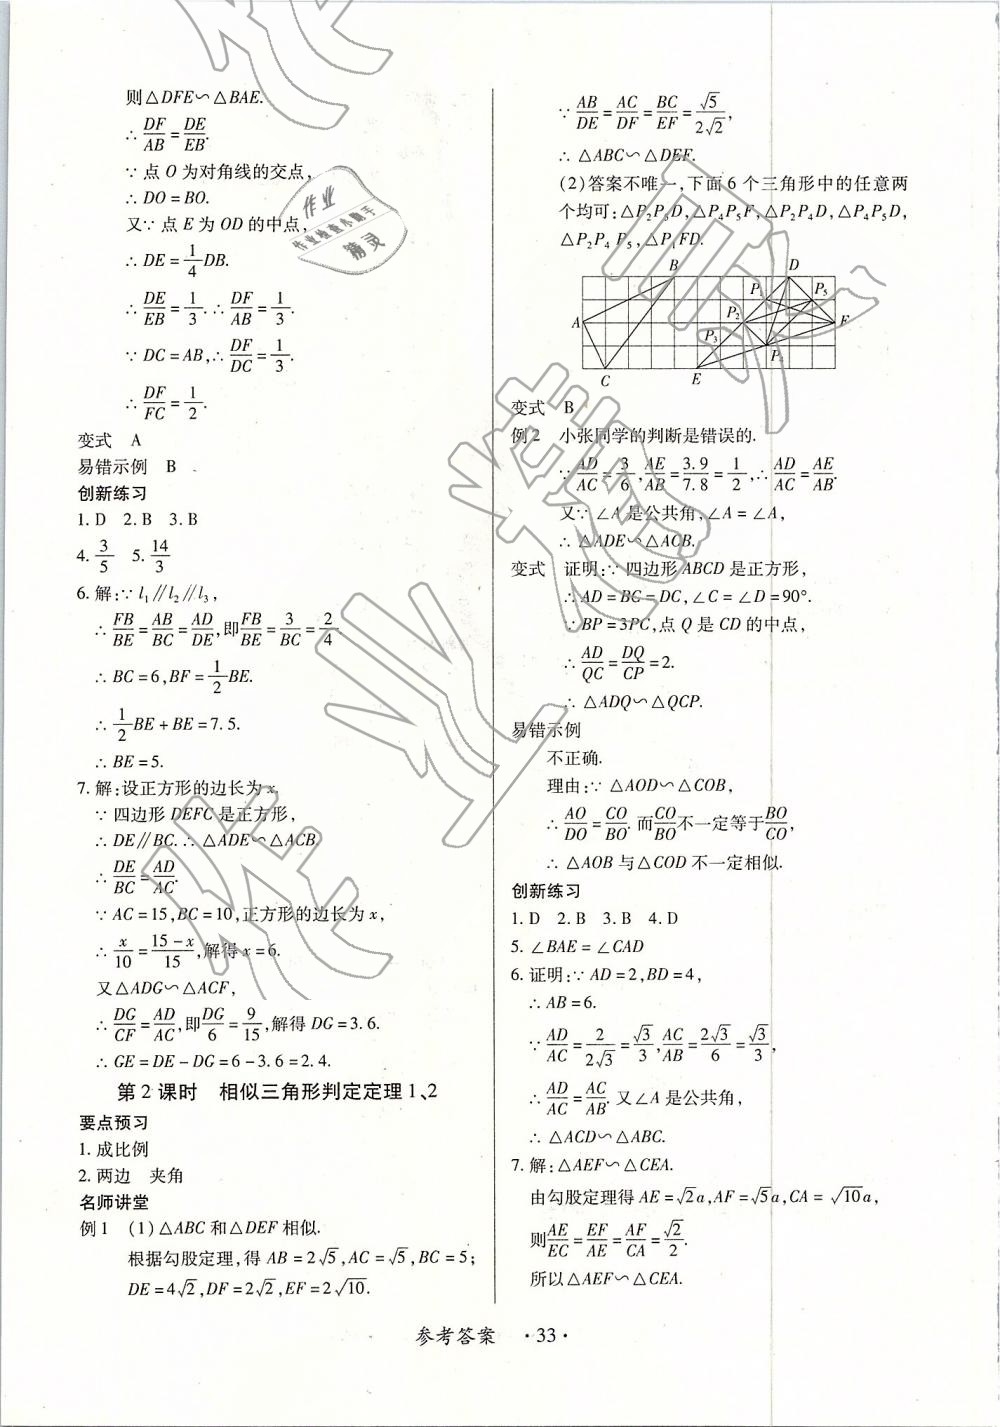 则△DFE∽△BAE.
∴DF/AB=DE/EB.
∵点O为对角线的交点,
∴DO=BO.
又∵点E为OD的中点,
∴DE=1/4DB.
∴DE/EB=1/3.∴DF/AB=1/3.
∵DC=AB,∴DF/DC=1/3.
∴DF/FC=1/2.
变式 A
易错示例 B
创新练习
1.D 2.B 3.B
4.3/5 5.14/3
6.解:∵l₁∥l₂∥l₃,
∴FB/BE=AB/BC=AD/DE,即FB/BE=3/BC=2/4.
∴BC=6,BF=1/2BE.
∴1/2BE+BE=7.5.
∴BE=5.
7.解:设正方形的边长为x,
∵四边形DEFC是正方形,
∴DE∥BC.∴△ADE∽△ACB.
∴DE/BC=AD/AC.
∵AC=15,BC=10,正方形的边长为x,
∴x/10=(15-x)/15,解得x=6.
又△ADG∽△ACF,
∴DG/CF=AD/AC,即DG/6=9/15,解得DG=3.6.
∴GE=DE-DG=6-3.6=2.4.
第2课时 相似三角形判定定理1、2
要点预习
1.成比例
2.两边 夹角
名师讲堂
例1 (1)△ABC和△DEF相似.
根据勾股定理,得AB=2√5,AC=√5,BC=5;
DE=4√2,DF=2√2,EF=2√10.
∵AB/DE=AC/DF=BC/EF=√5/2√2,
∴△ABC∽△DEF.
(2)答案不唯一,下面6个三角形中的任意两
个均可:△P₂P₅D,△P₄P₅F,△P₂P₄D,△P₄P₅D,
△P₂P₄P₅,△P₁FD.
B D
P₁ P₅
A P₂ F
P₃ P₄
C E
变式 B
例2 小张同学的判断是错误的.
∵AD/AC=3/6,AE/AB=3.9/7.8=1/2,∴AD/AC=AE/AB.
又∵∠A是公共角,∠A=∠A,
∴△ADE∽△ACB.
变式 证明:∵四边形ABCD是正方形,
∴AD=BC=DC,∠C=∠D=90°.
∵BP=3PC,点Q是CD的中点,
∴AD/QC=DQ/CP=2.
∴△ADQ∽△QCP.
易错示例
不正确.
理由:∵△AOD∽△COB,
∴AO/DO=CO/BO.而CO/BO不一定等于BO/CO,
∴△AOB与△COD不一定相似.
创新练习
1.D 2.B 3.B 4.D
5.∠BAE=∠CAD
6.证明:∵AD=2,BD=4,
∴AB=6.
∵AD/AC=2/2√3=√3/3,AC/AB=2√3/6=√3/3,
∴AD/AC=AC/AB.又∠A是公共角,
∴△ACD∽△ABC.
7.解:△AEF∽△CEA.
由勾股定理得AE=√2a,AF=√5a,CA=√10a,
则AE/EC=EF/AE=AF/CA=√2/2.
所以△AEF∽△CEA.
参考答案 ·33·
作业
作业检查小助手
精灵
作业精灵